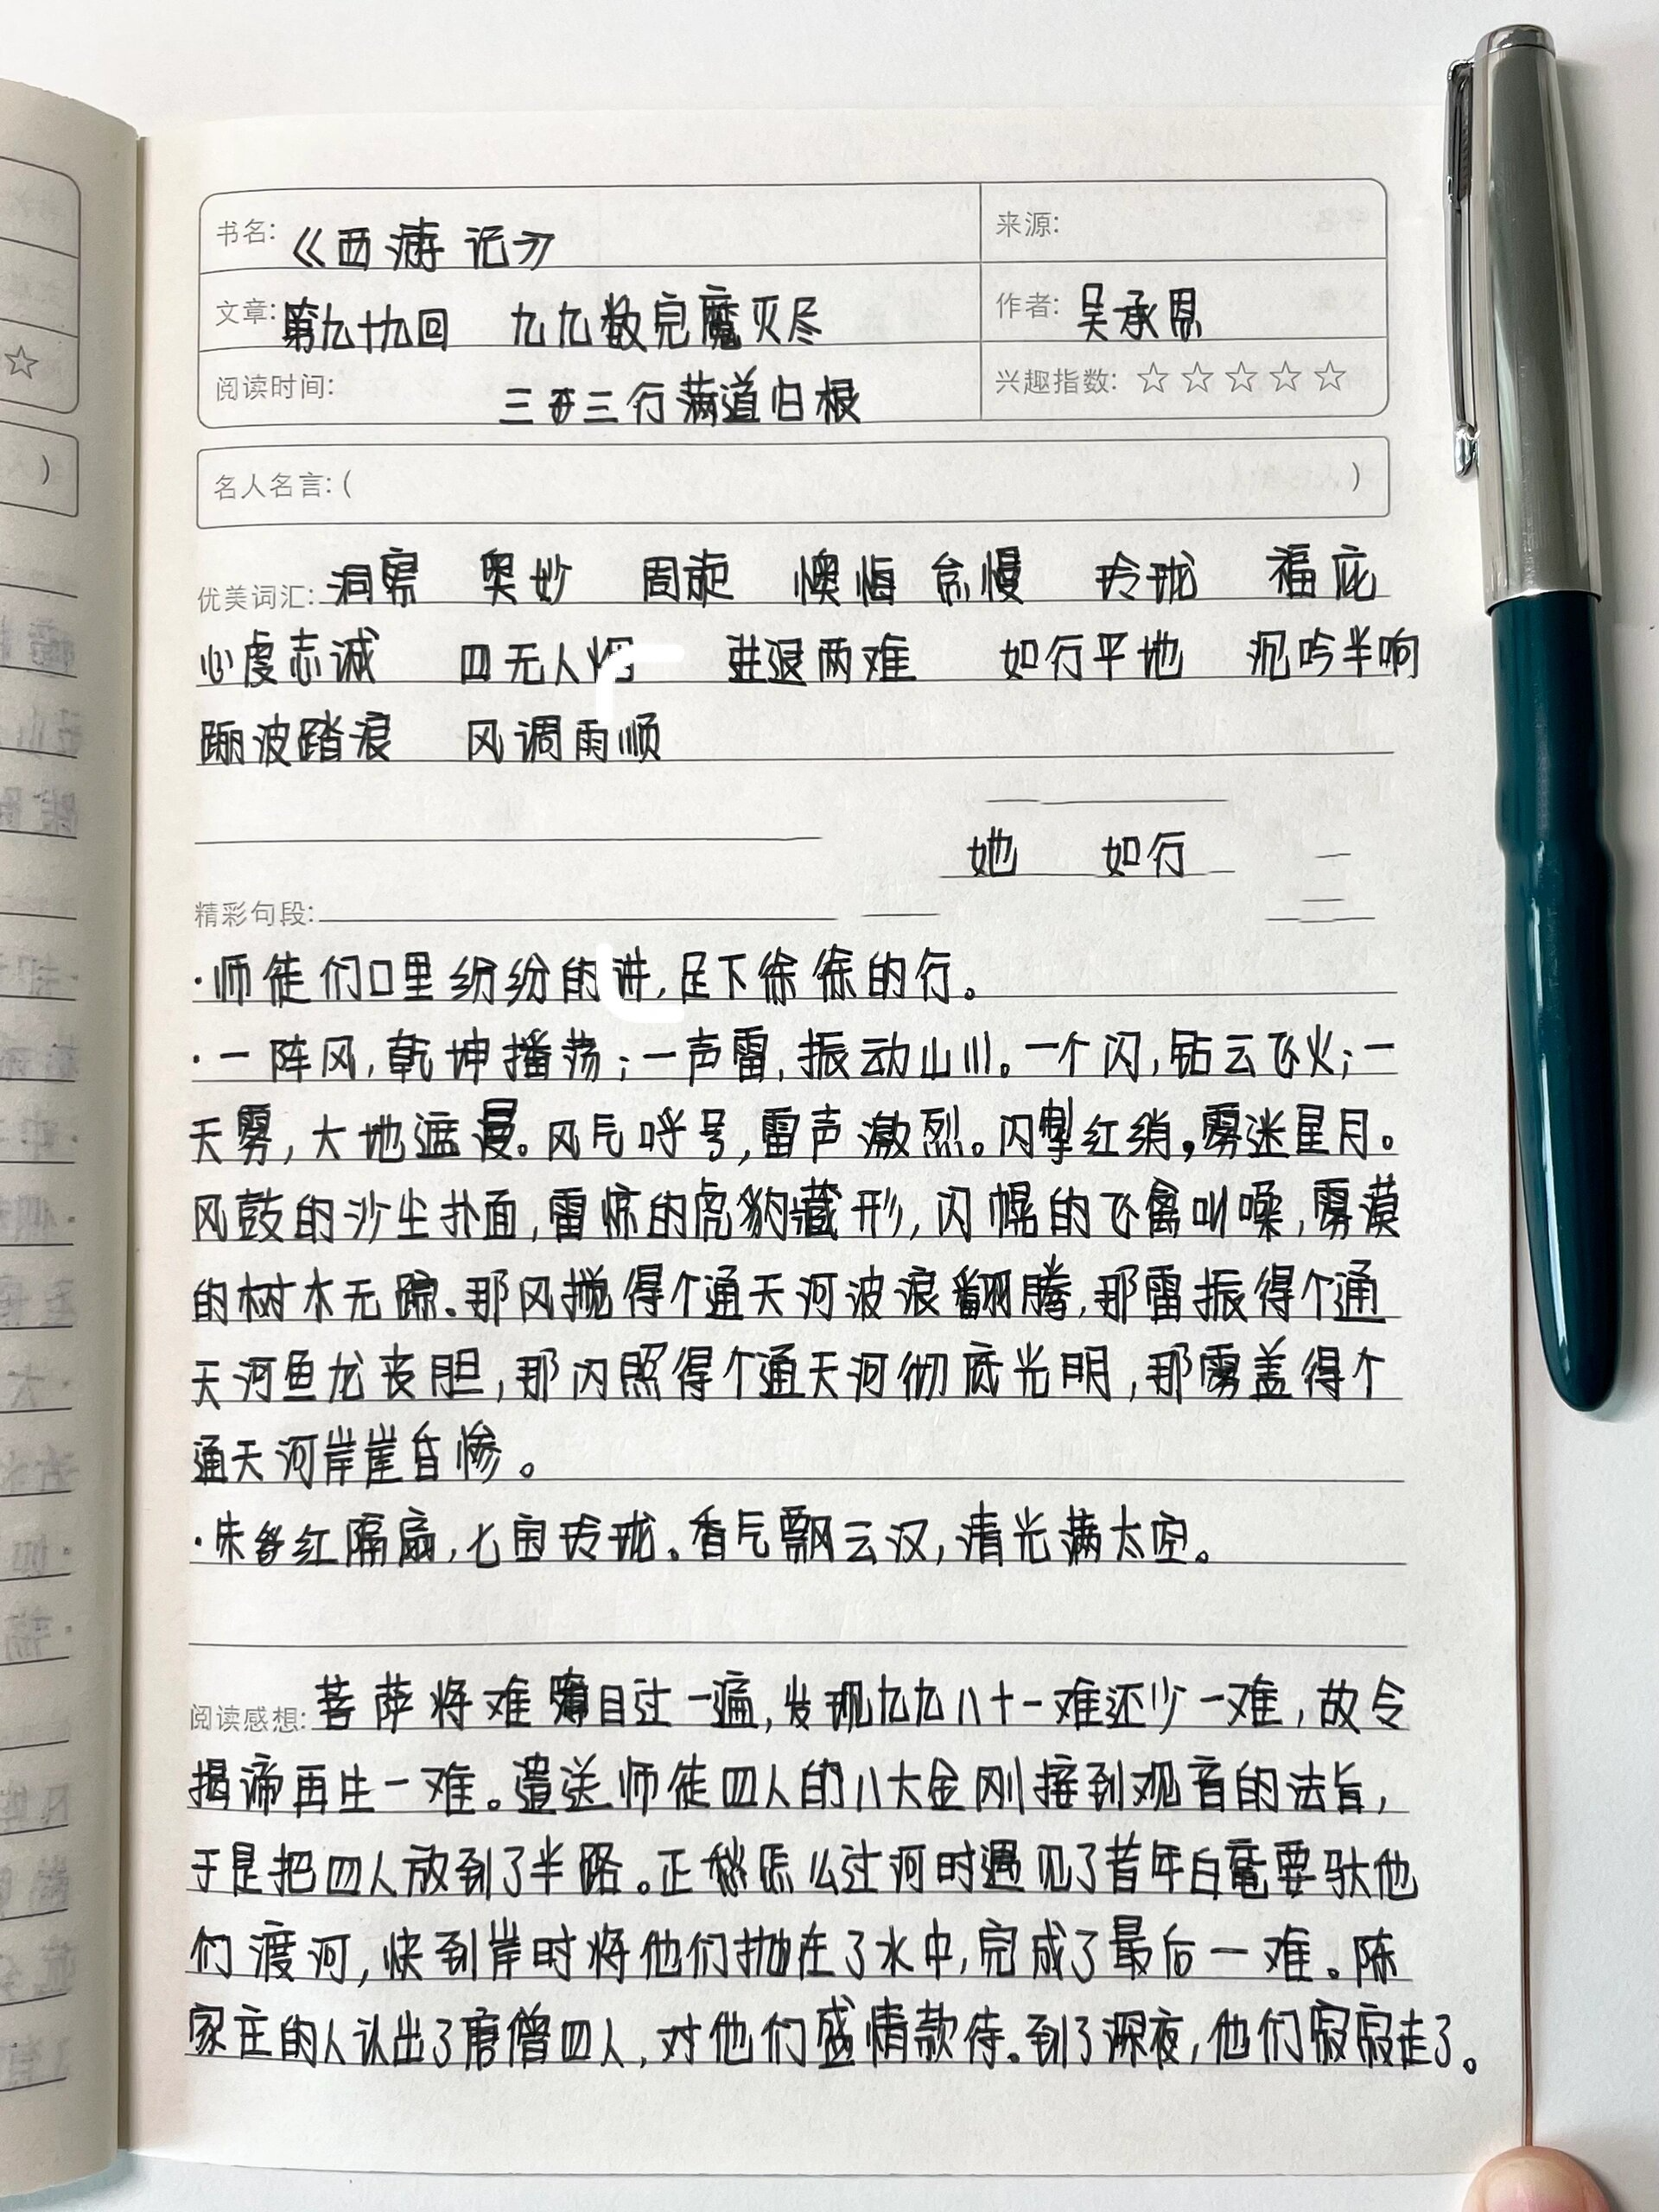 书名: 《西游记》 来源:
文章: 第九十九回 九九数完魔灭尽 作者: 吴承恩
阅读时间: 三三行满道归根 兴趣指数: ☆☆☆☆☆
名人名言: ( )
优美词汇: 洞察 奥妙 周旋 懊悔 怠慢 玲珑 福庇
心虔志诚 四无人烟 进退两难 如行平地 沉吟半晌
蹦波踏浪 风调雨顺
她 如行
精彩句段:
·师徒们口里纷纷的讲,足下徐徐的行。
·一阵风,乾坤播荡;一声雷,振动山川。一个闪,钻云飞火;一
天雾,大地遮漫。风气呼号,雷声激烈。闪掣红绡,雾迷星月。
风鼓的沙尘扑面,雷惊的虎豹藏形,闪幌的飞禽叫噪,雾漠
的树木无踪。那风搅得个通天河波浪翻腾,那雷振得个通
天河鱼龙丧胆,那闪照得个通天河彻底光明,那雾盖得个
通天河岸崖昏惨。
·红隔扇,七宝玲珑。香气飘云汉,清光满太空。
阅读感想: 菩萨将难簿目过一遍,发现九九八十一难还少一难,故令
揭谛再生一难。遣送师徒四人的八大金刚接到观音的法旨,
于是把四人放到了半路。正愁怎么过河时遇见了昔年白鼋要驮他
们渡河,快到岸时将他们抛在了水中,完成了最后一难。陈
家庄的人认出了唐僧四人,对他们盛情款待。到了深夜,他们寂寂走了。